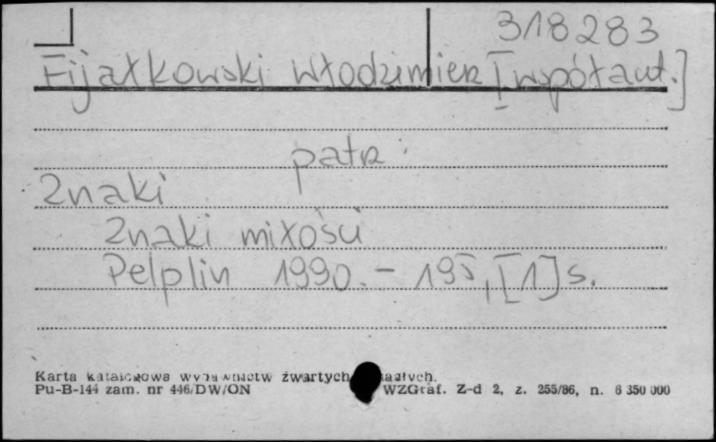 318283
Fijałkowski Włodzimierz [współaut.]
patrz:
Znaki
Znaki miłości
Pelplin 1990. - 195, [1] s.
Karta katalogowa wydawnictw zwartych
Pu-B-144 zam. nr 446/DW/ON WZGraf. Z-d 2, z. 255/86, n. 6 350 000